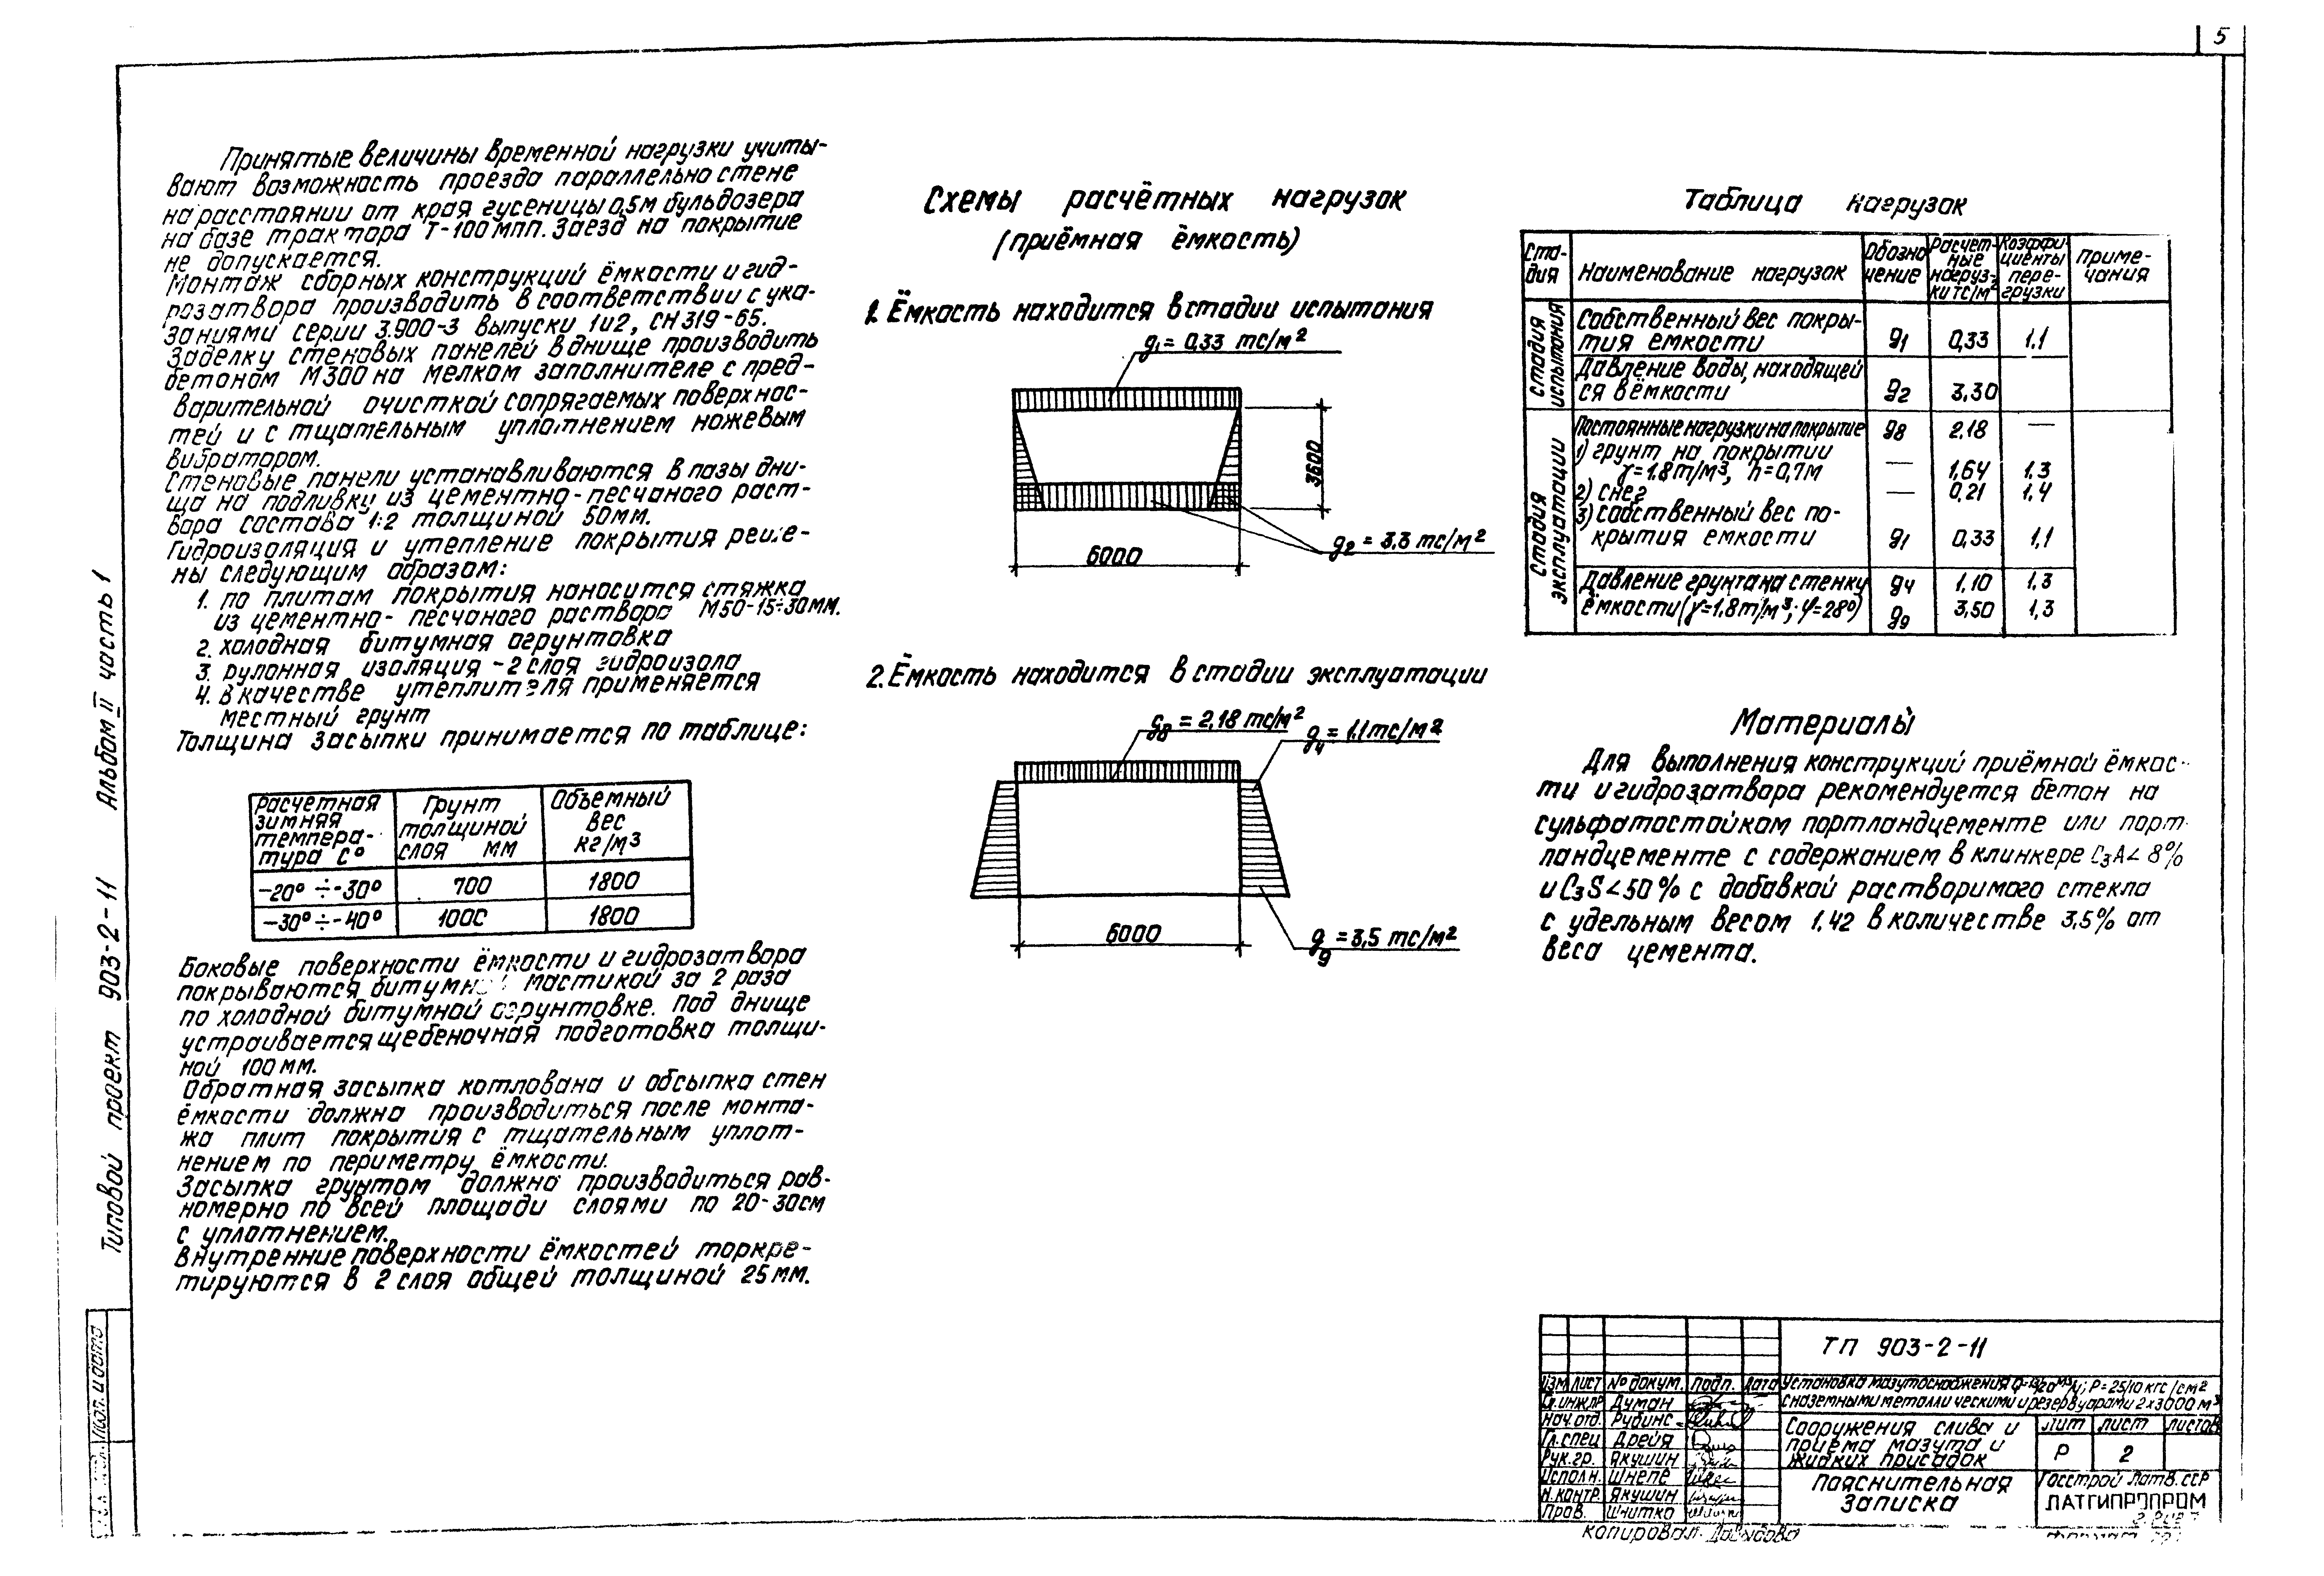 5
Принятые величины временной нагрузки учиты-
вают возможность проезда параллельно стене
на расстоянии от края гусеницы 0,5м бульдозера
на базе трактора Т-100МПП. Заезд на покрытие
не допускается.
Монтаж сборных конструкций ёмкости и гид-
розатвора производить в соответствии с ука-
заниями серии 3.900-3 выпуски 1и2, СН 319-65.
Заделку стеновых панелей в днище производить
бетоном М300 на мелком заполнителе с пред-
варительной очисткой сопрягаемых поверхнос-
тей и с тщательным уплотнением ножевым
вибратором.
Стеновые панели устанавливаются в пазы дни-
ща на подливку из цементно-песчаного раст-
вора состава 1:2 толщиной 50мм.
Гидроизоляция и утепление покрытия реше-
ны следующим образом:
1. по плитам покрытия наносится стяжка
из цементно-песчаного раствора М50-15÷30мм.
2. холодная битумная огрунтовка
3. рулонная изоляция -2 слоя гидроизола
4. в качестве утеплителя применяется
местный грунт
Толщина засыпки принимается по таблице:
Расчетная зимняя темпера-тура С° Грунт толщиной слоя мм Объемный вес кг/м3
-20° ÷ -30° 700 1800
-30° ÷ -40° 1000 1800
Боковые поверхности ёмкости и гидрозатвора
покрываются битумной мастикой за 2 раза
по холодной битумной огрунтовке. Под днище
устраивается щебеночная подготовка толщи-
ной 100мм.
Обратная засыпка котлована и обсыпка стен
ёмкости должна производиться после монта-
жа плит покрытия с тщательным уплот-
нением по периметру ёмкости.
Засыпка грунтом должна производиться рав-
номерно по всей площади слоями по 20-30см
с уплотнением.
Внутренние поверхности ёмкостей торкре-
тируются в 2 слоя общей толщиной 25мм.
Схемы расчётных нагрузок
(приёмная ёмкость)
1. Ёмкость находится в стадии испытания
g1 = 0,33 тс/м2
3600
6000
g2 = 3,3 тс/м2
2. Ёмкость находится в стадии эксплуатации
g8 = 2,18 тс/м2
g4 = 1.1 тс/м2
6000
g9 = 3,5 тс/м2
Таблица нагрузок
Ста-дия Наименование нагрузок Обозна чение Расчет-ные нагруз-ки тс/м2 Коэффи-циенты пере-грузки Приме-чания
Стадия испытания
Собственный вес покры-
тия емкости g1 0,33 1.1
Давление воды, находящей
ся в ёмкости g2 3,30
Стадия эксплуатации
Постоянные нагрузки на покрытие g8 2.18 —
1) грунт на покрытии
γ=1.8т/м3, h=0,7м — 1,64 1.3
2) снег — 0,21 1,4
3) собственный вес по-
крытия емкости g1 0,33 1,1
Давление грунта на стенку g4 1,10 1,3
ёмкости (γ=1.8т/м3; φ=28°) g9 3,50 1,3
Материалы
Для выполнения конструкций приёмной ёмкос-
ти и гидрозатвора рекомендуется бетон на
сульфатостойком портландцементе или порт-
ландцементе с содержанием в клинкере C3A< 8%
и C3S<50% с добавкой растворимого стекла
с удельным весом 1,42 в количестве 3,5% от
веса цемента.
Типовой проект 903-2-11 Альбом II часть 1
Подп. и дата
ТП 903-2-11
Изм Лист № докум. Подп. Дата
Гл.инж.пр Думан
Нач.отд. Рубинс
Гл.спец Дрейя
Рук.гр. Якушин
Исполн. Шнепе
Н.контр. Якушин
Пров. Шнитко
Установка мазутоснабжения Р=25/10 кгс/см2
с наземными металлическими резервуарами 2x3000 м3
Сооружения слива и
приема мазута и
жидких присадок
Лит Лист Листов
Р 2
Пояснительная
записка
Госстрой Латв.ССР
ЛАТГИПРОПРОМ
Копировал: Давыдова